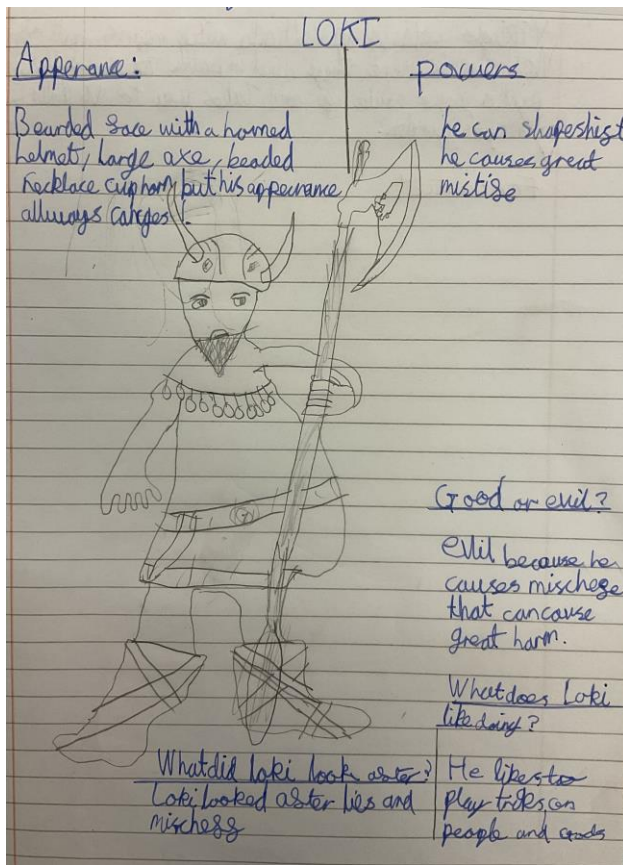 LOKI
Apperance:
Bearded face with a horned
helmet, large axe, beaded
necklace cuphorn but his appearance
allways canges!
powers
he can shapeshift
he causes great
mistife
Good or evil?
evil because he
causes mischefe
that can cause
great harm.
What does Loki
like doing?
He likes to
play tricks on
people and gods
What did loki look after?
Loki looked after lies and
mischefs